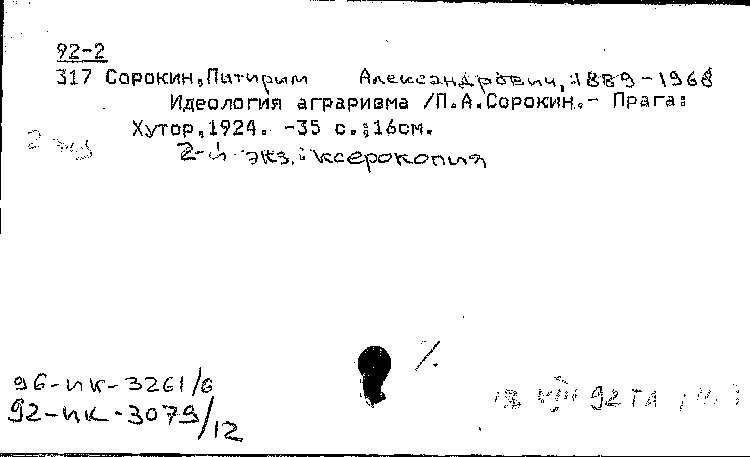 92-2
317 Сорокин,Питирим Александрович, 1889-1968
Идеология аграризма /П.А.Сорокин.- Прага:
Хутор,1924. -35 с.;16см.
2 экз
2-й экз.: ксерокопия
96-ик-3261/6
92-ик-3079/12
92 ТА